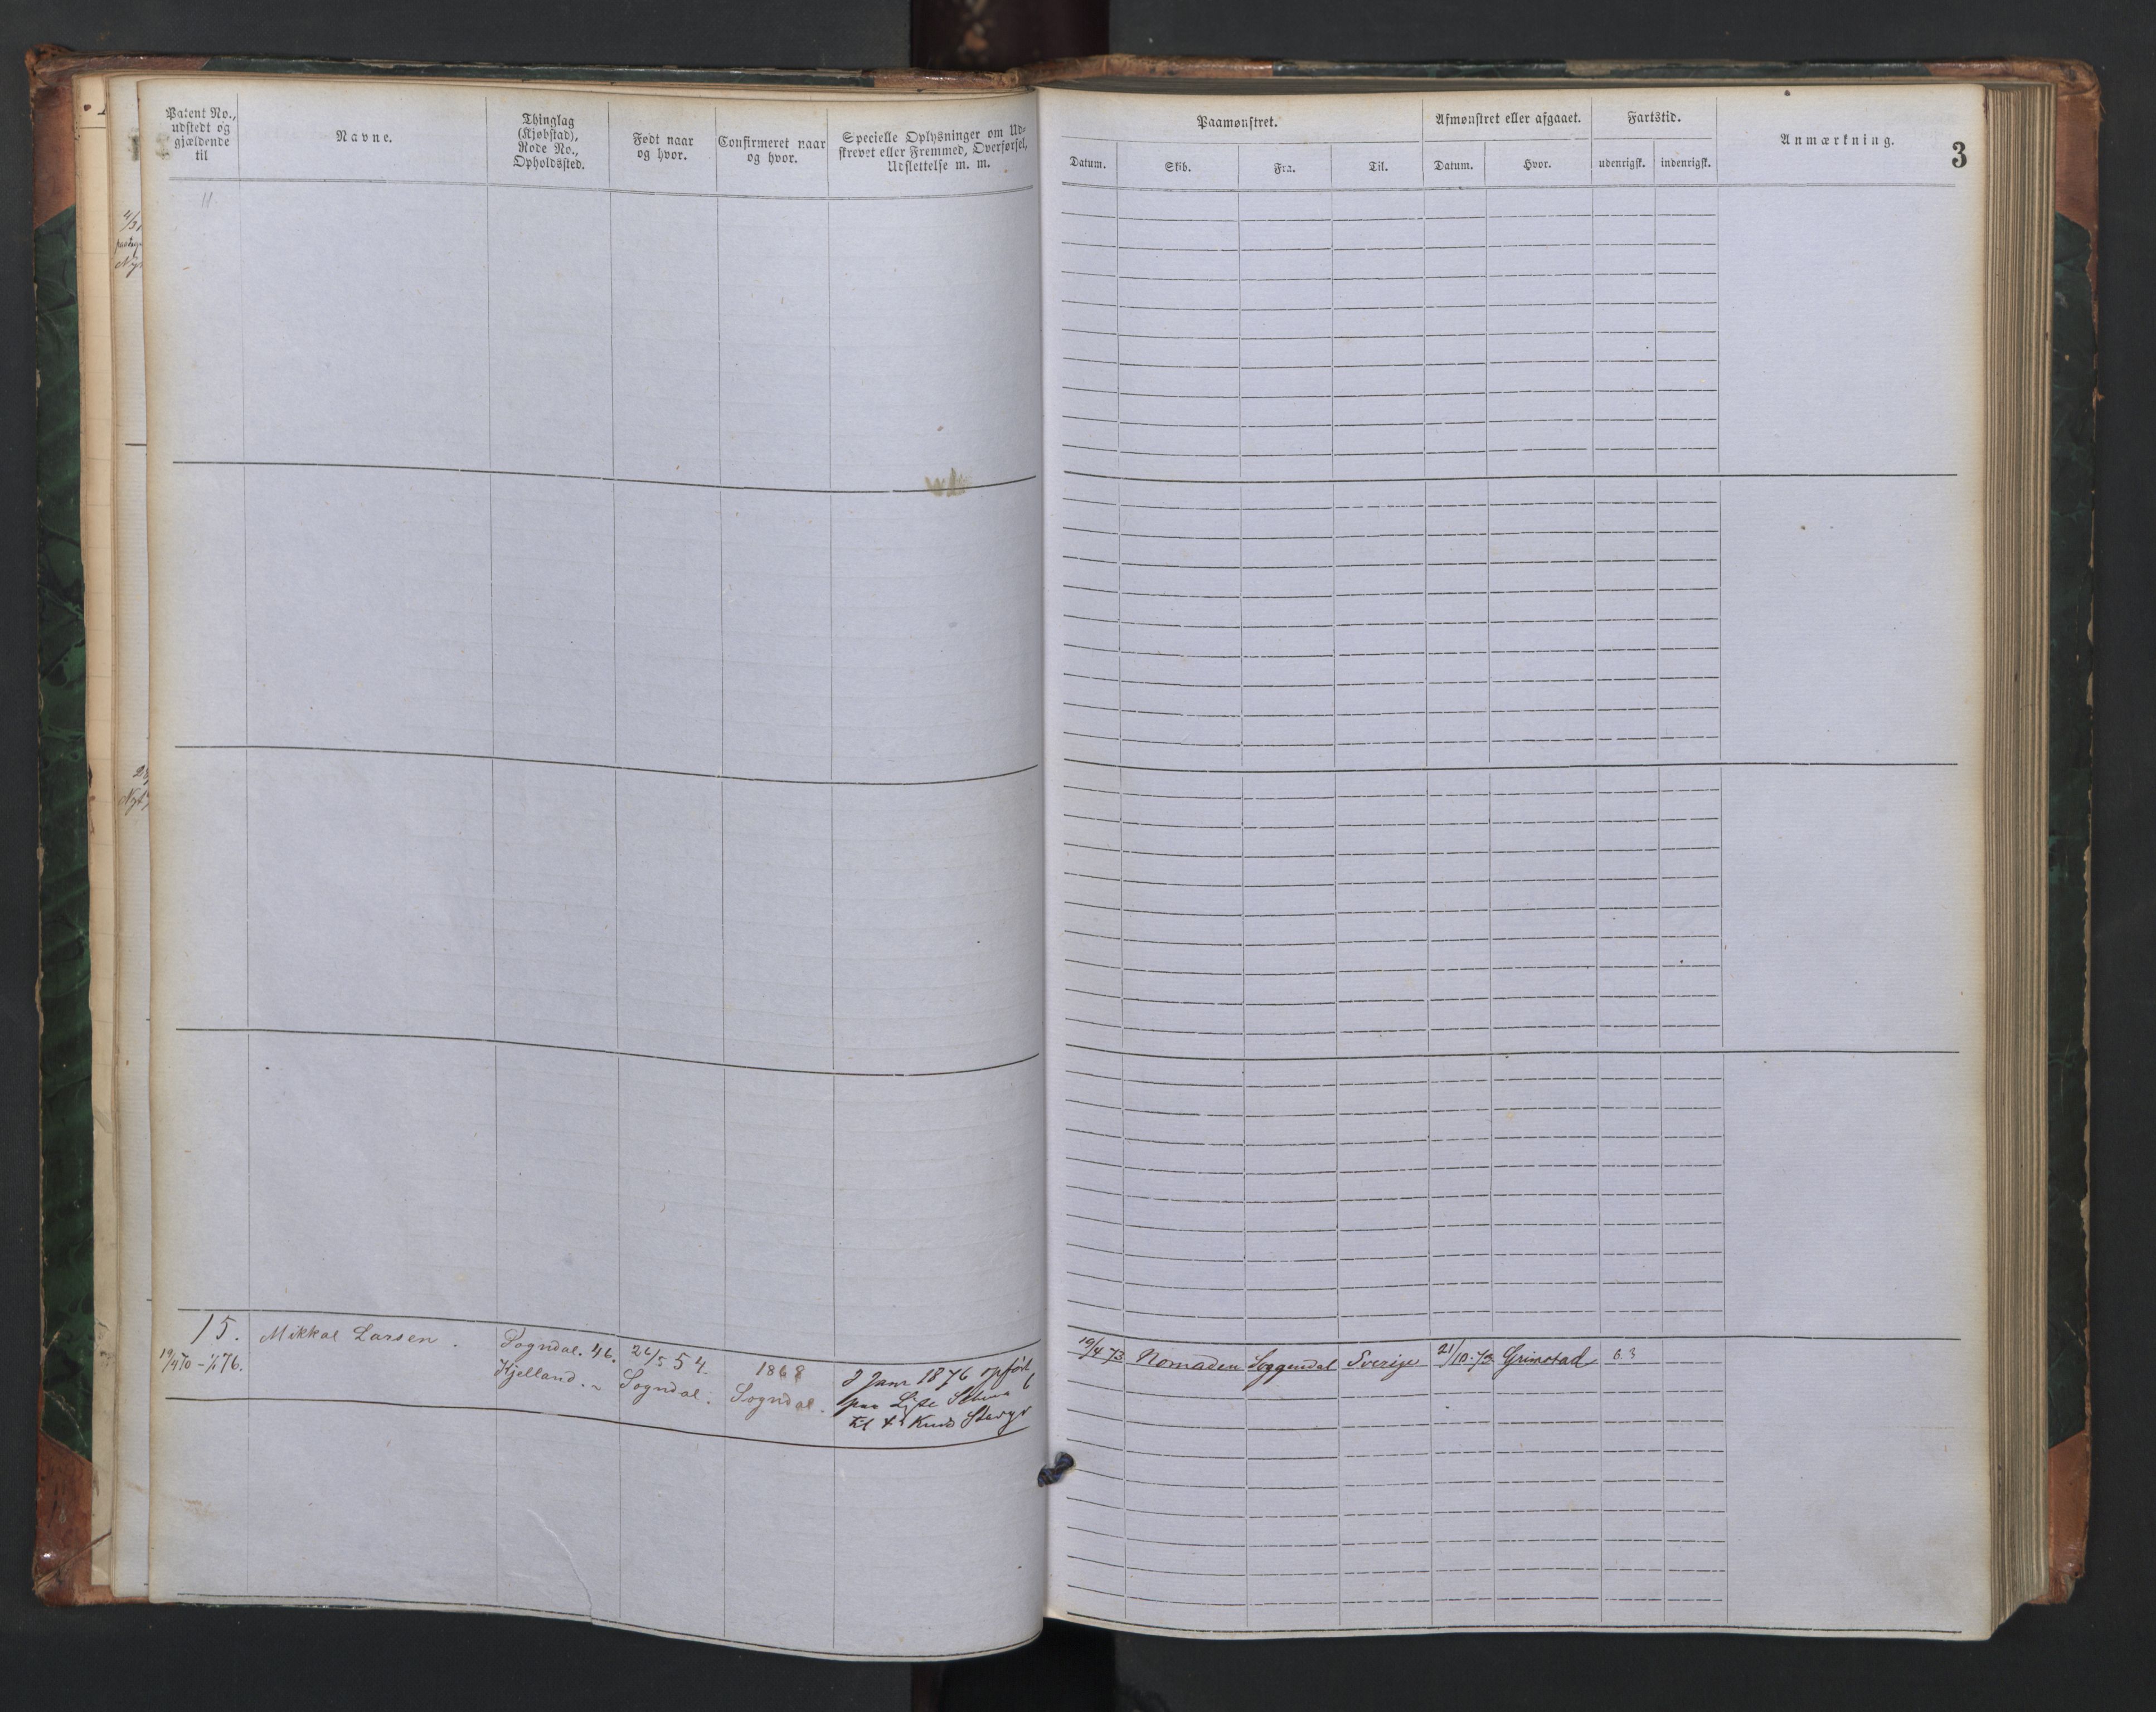 Patent No.,
udstedt og
gjældende
til
Navne.
Thinglag
(Kjøbstad),
Rode No.,
Opholdssted.
Født naar
og hvor.
Confirmeret naar
og hvor.
Specielle Oplysninger om Ud-
skrevet eller Fremmed, Overførsel,
Udslettelse m. m.
Paamønstret.
Afmønstret eller afgaaet.
Fartstid.
Anmærkning.
3
Datum.
Skib.
Fra.
Til.
Datum.
Hvor.
udenrigsk.
indenrigsk.
11.
15.
19/4 70 - 1/1 76.
Mikkal Larsen.
Sogndal. 46.
Kjelland.
26/5 54
Sogndal.
1868
Sogndal.
2 Janr 1876 opført
paa Liste
19/4 73
Nomaden
Soggendal
Sverige
21/10 73
Grimstad
6.3